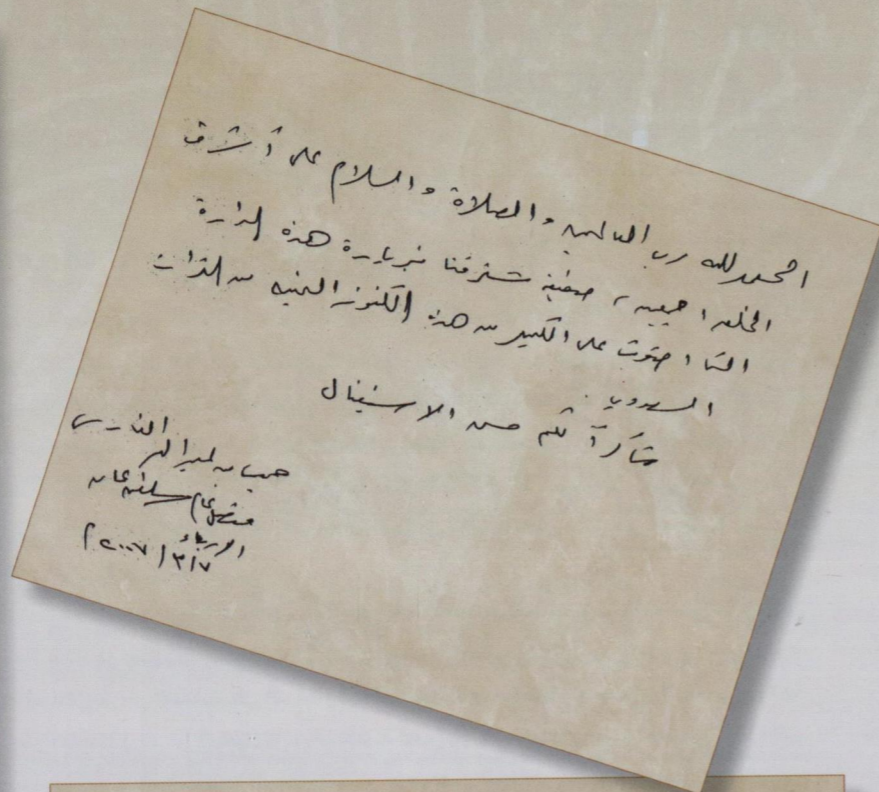 الحمد لله رب العالمين والصلاة والسلام على أشرف
الخلق أجمعين، حقيقة تشرفنا بزيارة هذه الدارة
التي احتوت على الكثير من هذه الكنوز الثمينة من التراث
السعودي.
شاكراً لكم حسن الاستقبال
الفارسي
عبدالله
قنصل عام سلطنة عمان
الأربعاء
٢٠٠٧/٣/٧م